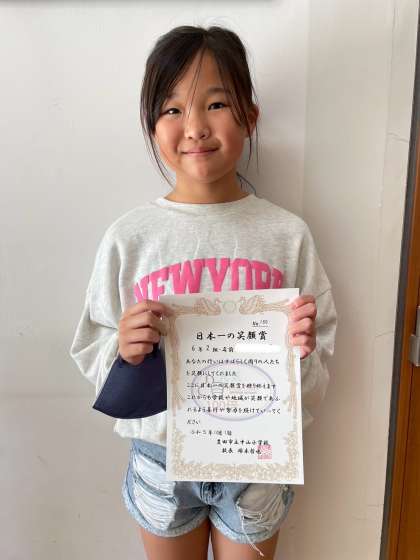 NEWYORK
No.100
日本一の笑顔賞
6年2組・名前
あなたの行いはすばらしく周りの人たち
を笑顔にしてくれました
ここに日本一の笑顔賞を贈り称えます
これからも学校や地域が笑顔であふ
れるよう善行や努力を続けていってく
ださい
豊田市立中山小学校
校長